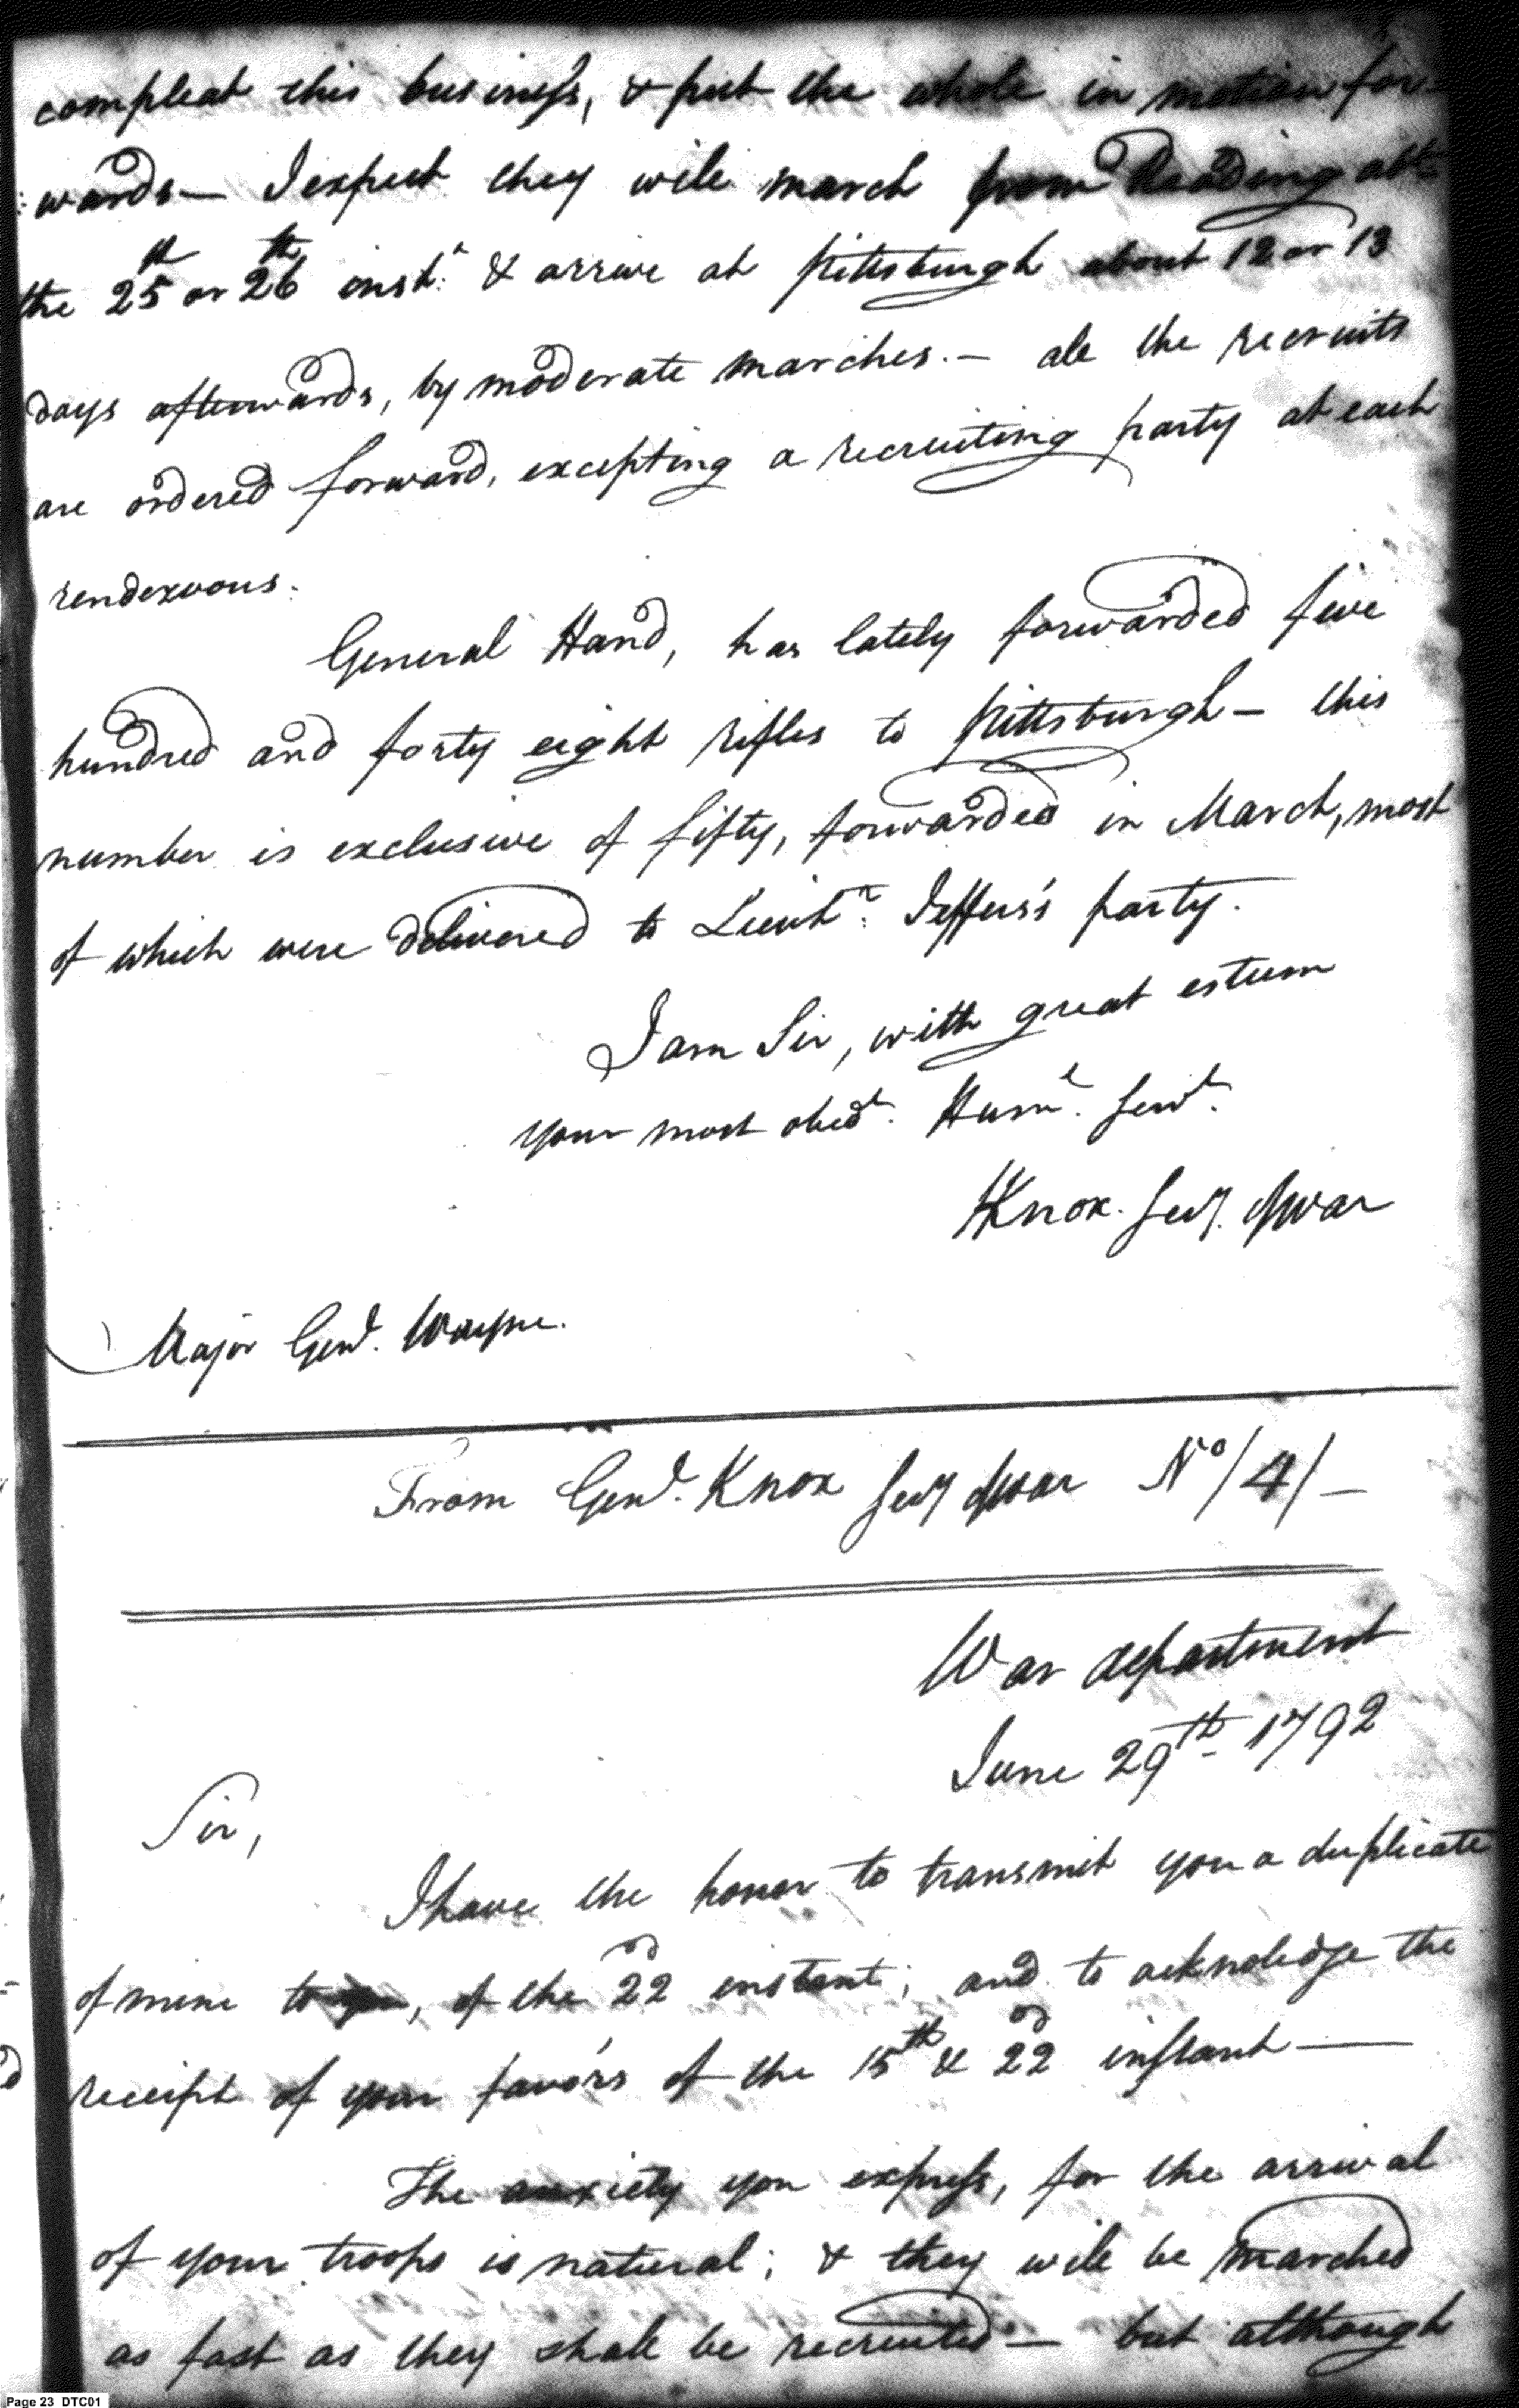 compleat this business, & put the whole in motion for-
wards— I expect they will march from Reading abt
the 25th or 26th inst. & arrive at pittsburgh about 12 or 13
days afterwards, by moderate marches.— all the recruits
are ordered forward, excepting a recruiting party at each
rendezvous.
General Hand, has lately forwarded five
hundred and forty eight rifles to pittsburgh— this
number is exclusive of fifty, forwarded in March, most
of which were delivered to Lieutn. Jeffers's party.
I am Sir, with great esteem
your most obedt. Huml. Servt.
HKnox. Secy. of war
Major Genl. Wayne.
From Genl. Knox Secy of war No/4/—
War department
June 29th 1792
Sir,
I have the honor to transmit you a duplicate
of mine to you, of the 22d instant; and to acknoledge the
receipt of your favo'rs of the 15th & 22d instant—
The anxiety you express, for the arrival
of your troops is natural; & they will be marched
as fast as they shall be recruited— but although
Page 23 DTC01